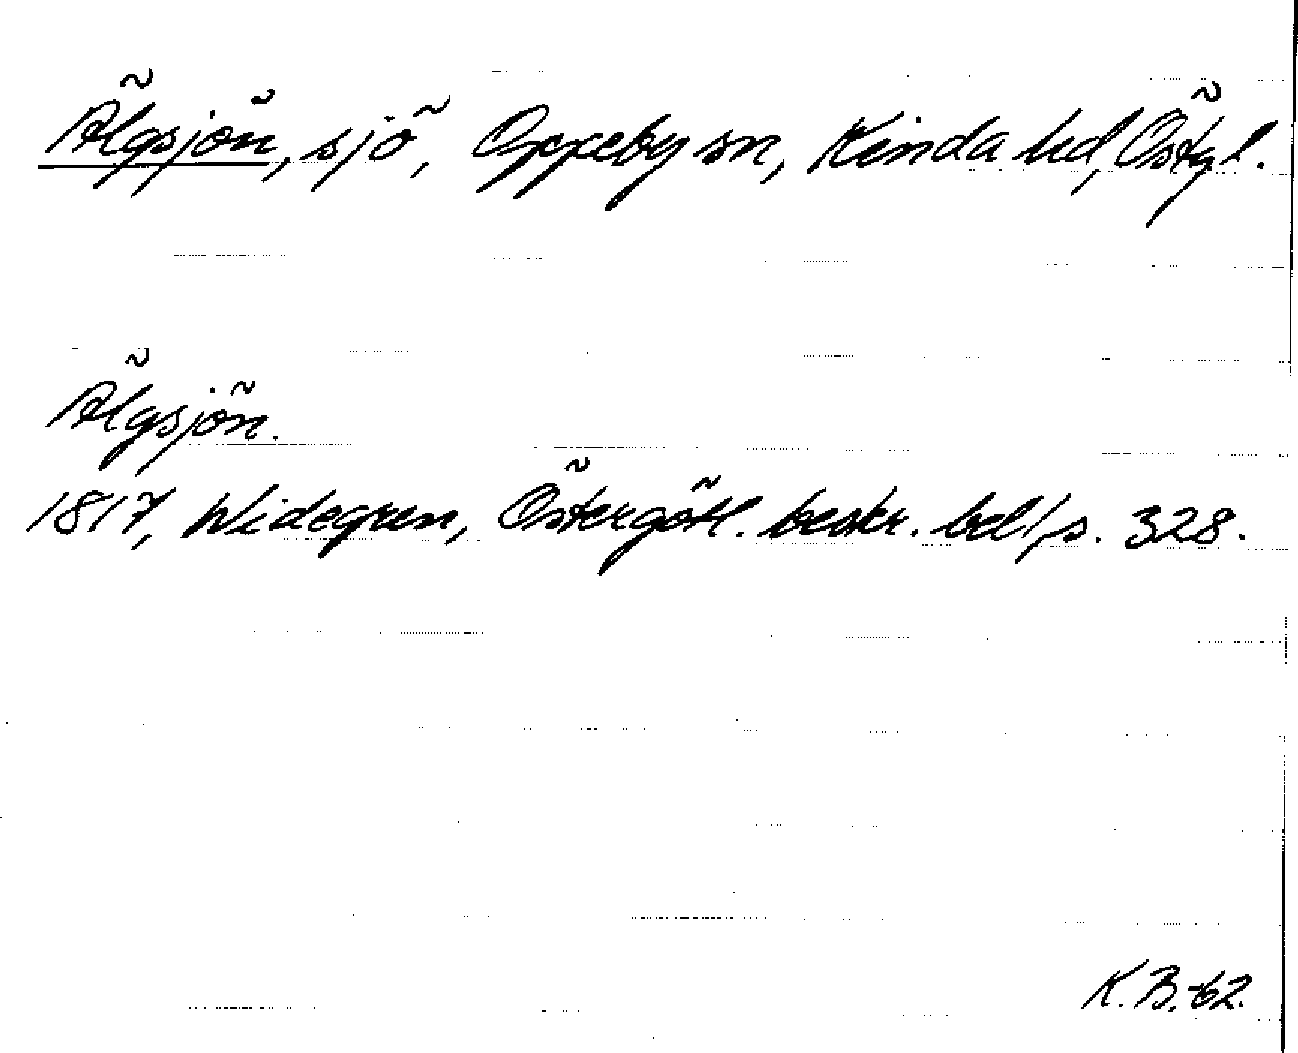 Älgsjön, sjö, Oppeby sn, Kinda hd, Östgl.
Älgsjön.
1817, Widegren, Östergötl. beskr. bd 1, s. 328.
K.B.-62.